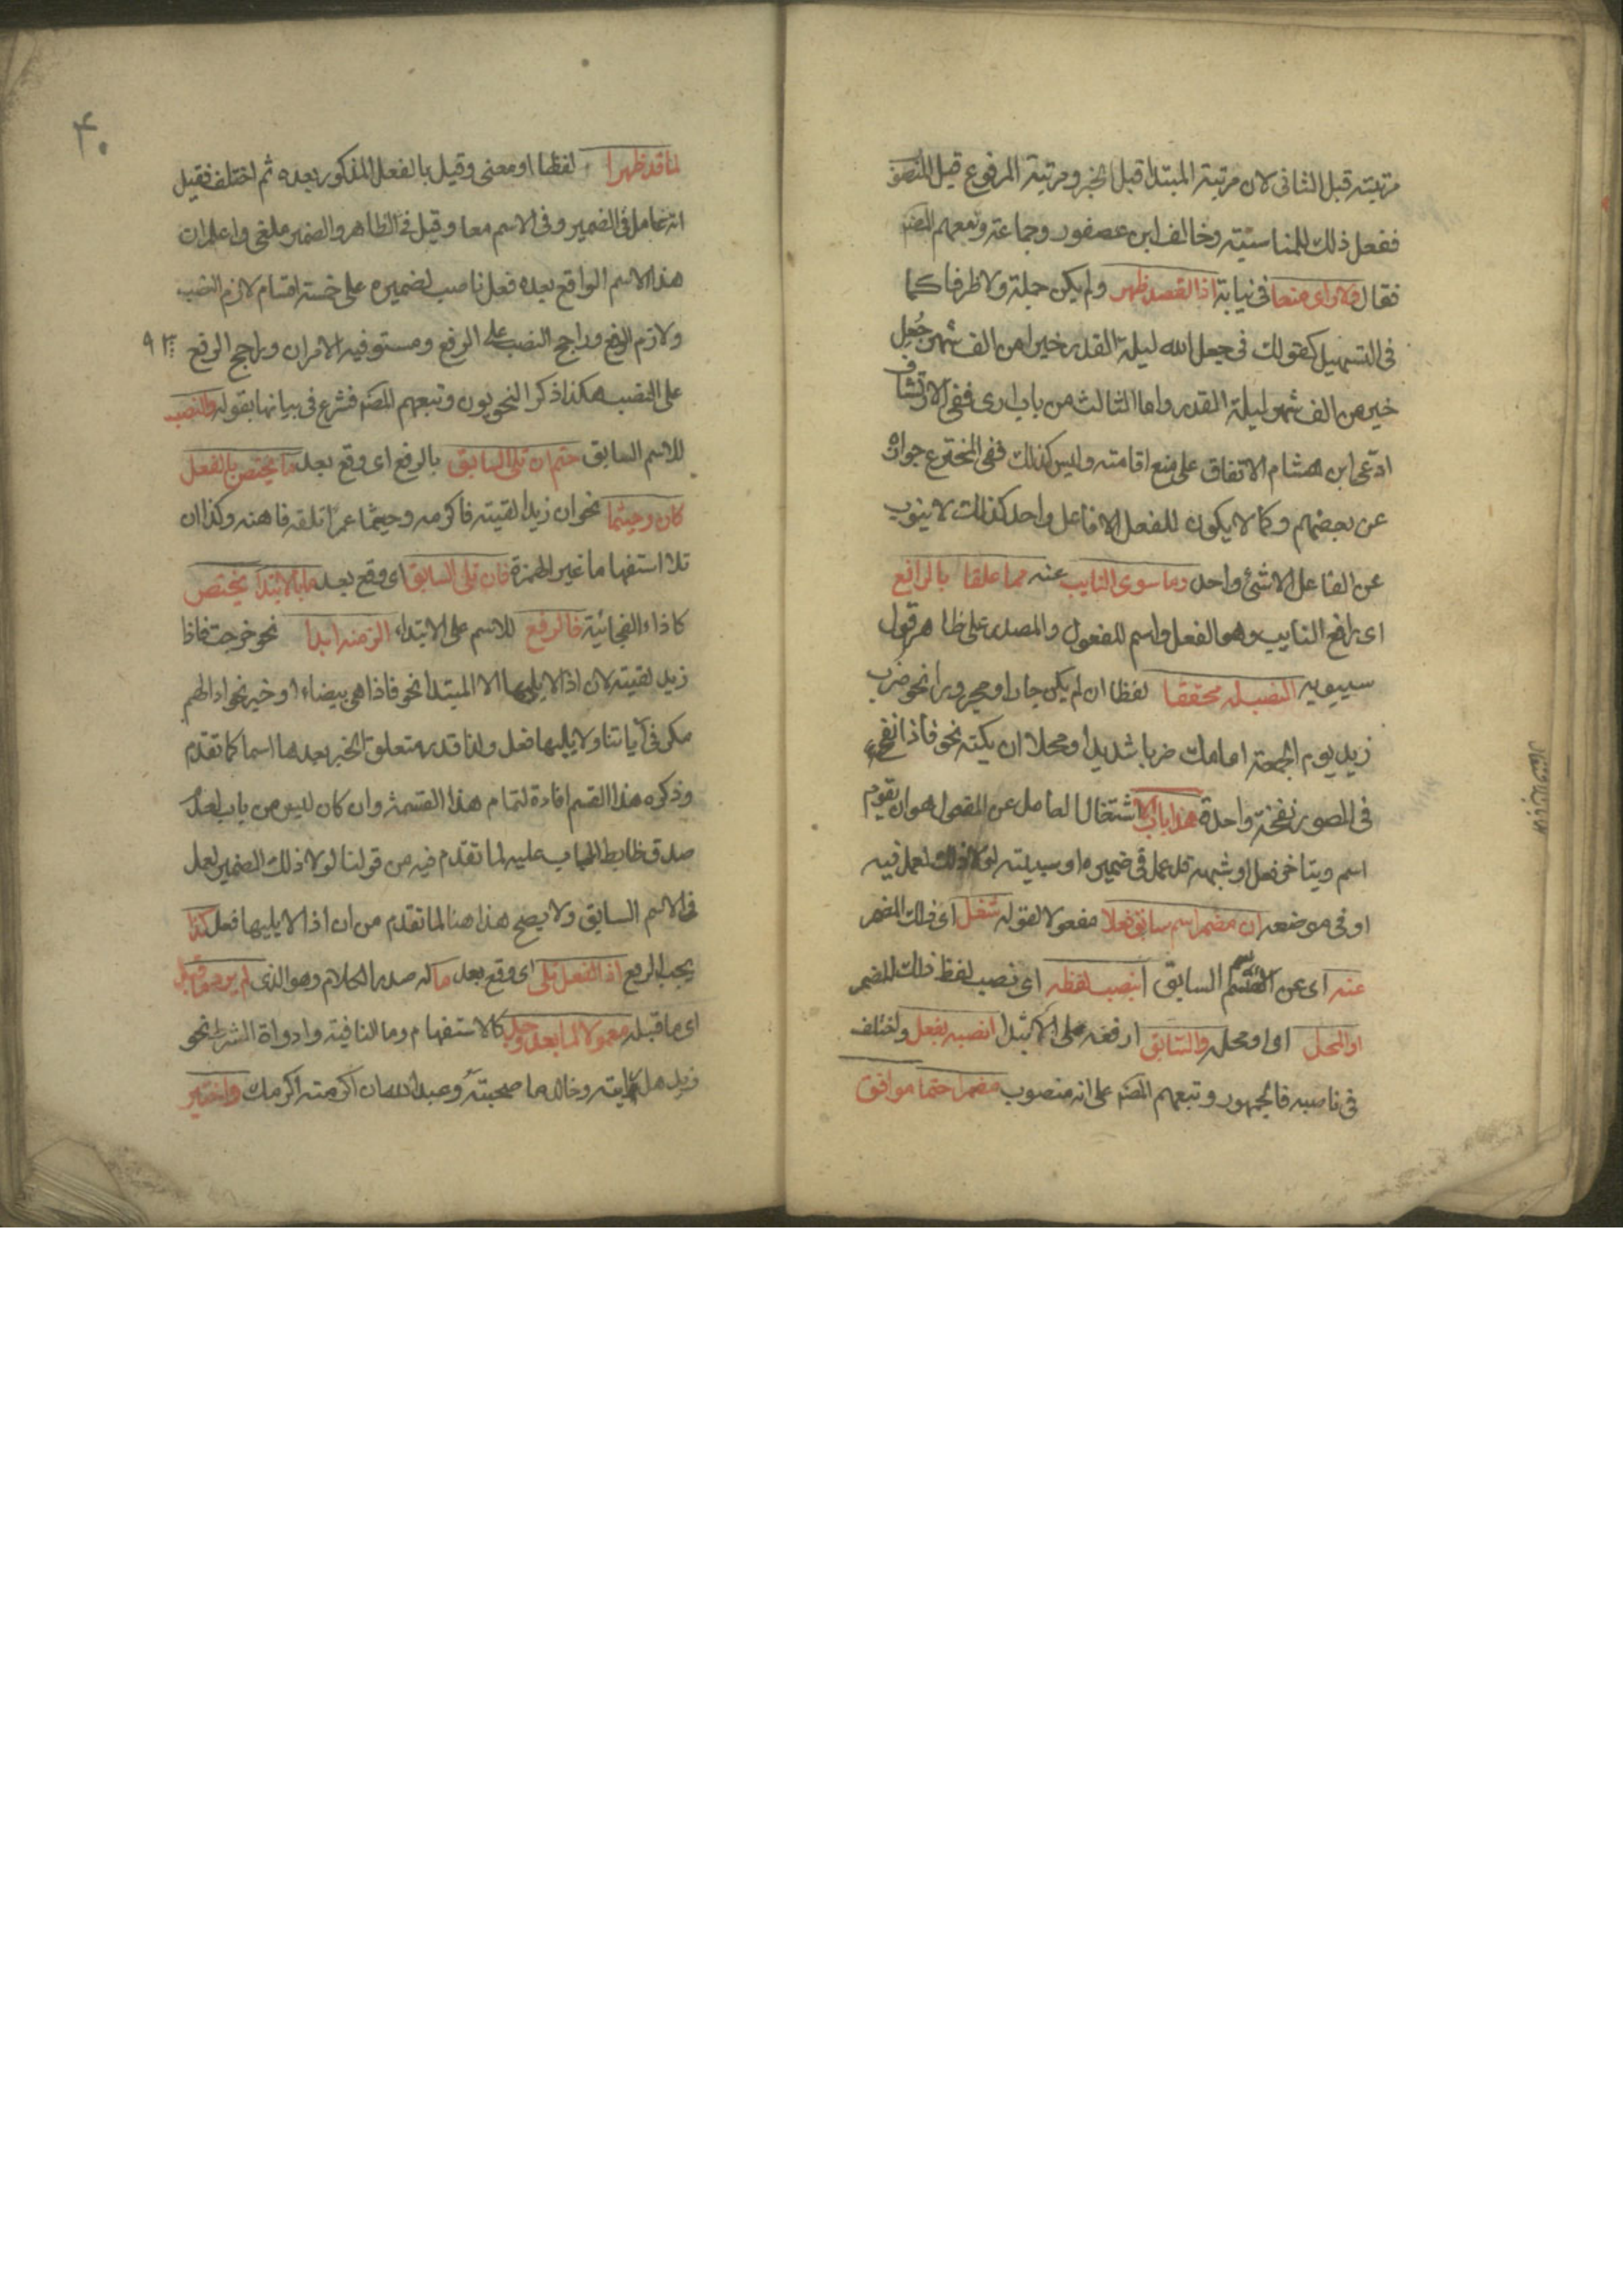 مرتبته قبل الثانى لان مرتبة المبتدا قبل الخبر ومرتبة المرفوع قبل المنصوب
ففعل ذلك للمناسبة وخالف ابن عصفور وجماعة وتبعهم المصنم
فقال فلا ارى منعا فى نيابة اذا القصد ظهر ولم يكن جملة ولا ظرفا كما
فى التسهيل كقولك فى جعل الله ليلة القدر خيرا من الف شهر جُعِل
خير من الف شهر ليلة القدر واما الثالث من باب ارى ففى الارتشاف
ادّعى ابن هشام الاتفاق على منع اقامته وليس كذلك ففى المخترع جوازه
عن بعضهم وكما لا يكون للفعل الا فاعل واحد كذلك لا ينوب
عن الفاعل الا شئ واحد وما سوى النايب عنه مما علقا بالرافع
اى برافع النايب وهو الفعل واسم المفعول والمصدر على ظاهر قول
سيبويه النصب له محققا لفظا ان لم يكن جارا ومجرورا نحو ضرب
زيد يوم الجمعة امامك ضربا شديدا ومحلا ان يكنه نحو فاذا نفخ
فى الصور نفخة واحدة هذا باب الاشتغال العامل عن المفعول هو ان يقوم
اسم ويتاخر فعل او شبهه قد عمل فى ضميره او سببيته لولا ذلك لعمل فيه
او فى موضعه ان مضمر اسم سابق فعلا مفعولا لقوله شغل اى ذلك المضمر
عنه اى عن الاسم السابق انصب لفظه اى نصب لفظ ذلك المضمر
او المحل اى او محله والسابق ارفعه على الابتدا انصبه بفعل واختلف
فى ناصبه فالجمهور وتبعهم المصنم على انه منصوب مضمرا حتما موافق
۴۰
لما قد ظهرا لفظا او معنى وقيل بالفعل المذكور بعده ثم اختلف فقيل
انه عامل فى الضمير وفى الاسم معا وقيل فى الظاهر والضمير ملغى واعلم ان
هذا الاسم الواقع بعده فعل ناصب لضميره على خمسة اقسام لازم النصب
ولازم الرفع وراجح النصب على الرفع ومستو فيه الامران وراجح الرفع
على النصب هكذا ذكر النحويون وتبعهم المصنم فشرع فى بيانها بقوله والنصب
للاسم السابق حتم ان تلى السابق بالرفع اى وقع بعد ما يختص بالفعل
كان وحيثما نحو ان زيدا لقيته فاكرمه وحيثما عمرا تلقه فاهنه وكذا ان
تلا استفهاما غير الهمزة فان تلى السابق اى وقع بعد ما بالابتدا يختص
كاذاء الفجائية فالرفع للاسم على الابتداء الزمنه ابدا نحو خرجت فاذا
زيد لقيته لان اذا لا يليها الا المبتدا نحو فاذا هى بيضاء او خبر نحو اذا لهم
مكر فى آياتنا ولا يليها فعل ولذا قدر متعلق الخبر بعدها اسما كما تقدم
وذكره هذا القسم افادة لتمام هذا القسمة وان كان ليس من باب لعدم
صدق ظابط الباب عليه لما تقدم فيه من قولنا لولا ذلك الضمير لعمل
فى الاسم السابق ولا يصح هذا هنا لما تقدم من ان اذا لا يليها فعل كذا
يجب الرفع اذا الفعل تلى اى وقع بعد ما له صدر الكلام وهو الذى لم يرد ما قبل
اى ما قبله معمولا لما بعد وجد كالاستفهام وما النافية وادواة الشرط نحو
زيد هل رايته وخالد ما صحبته وعبد الله ان اكرمته اكرمك واختير